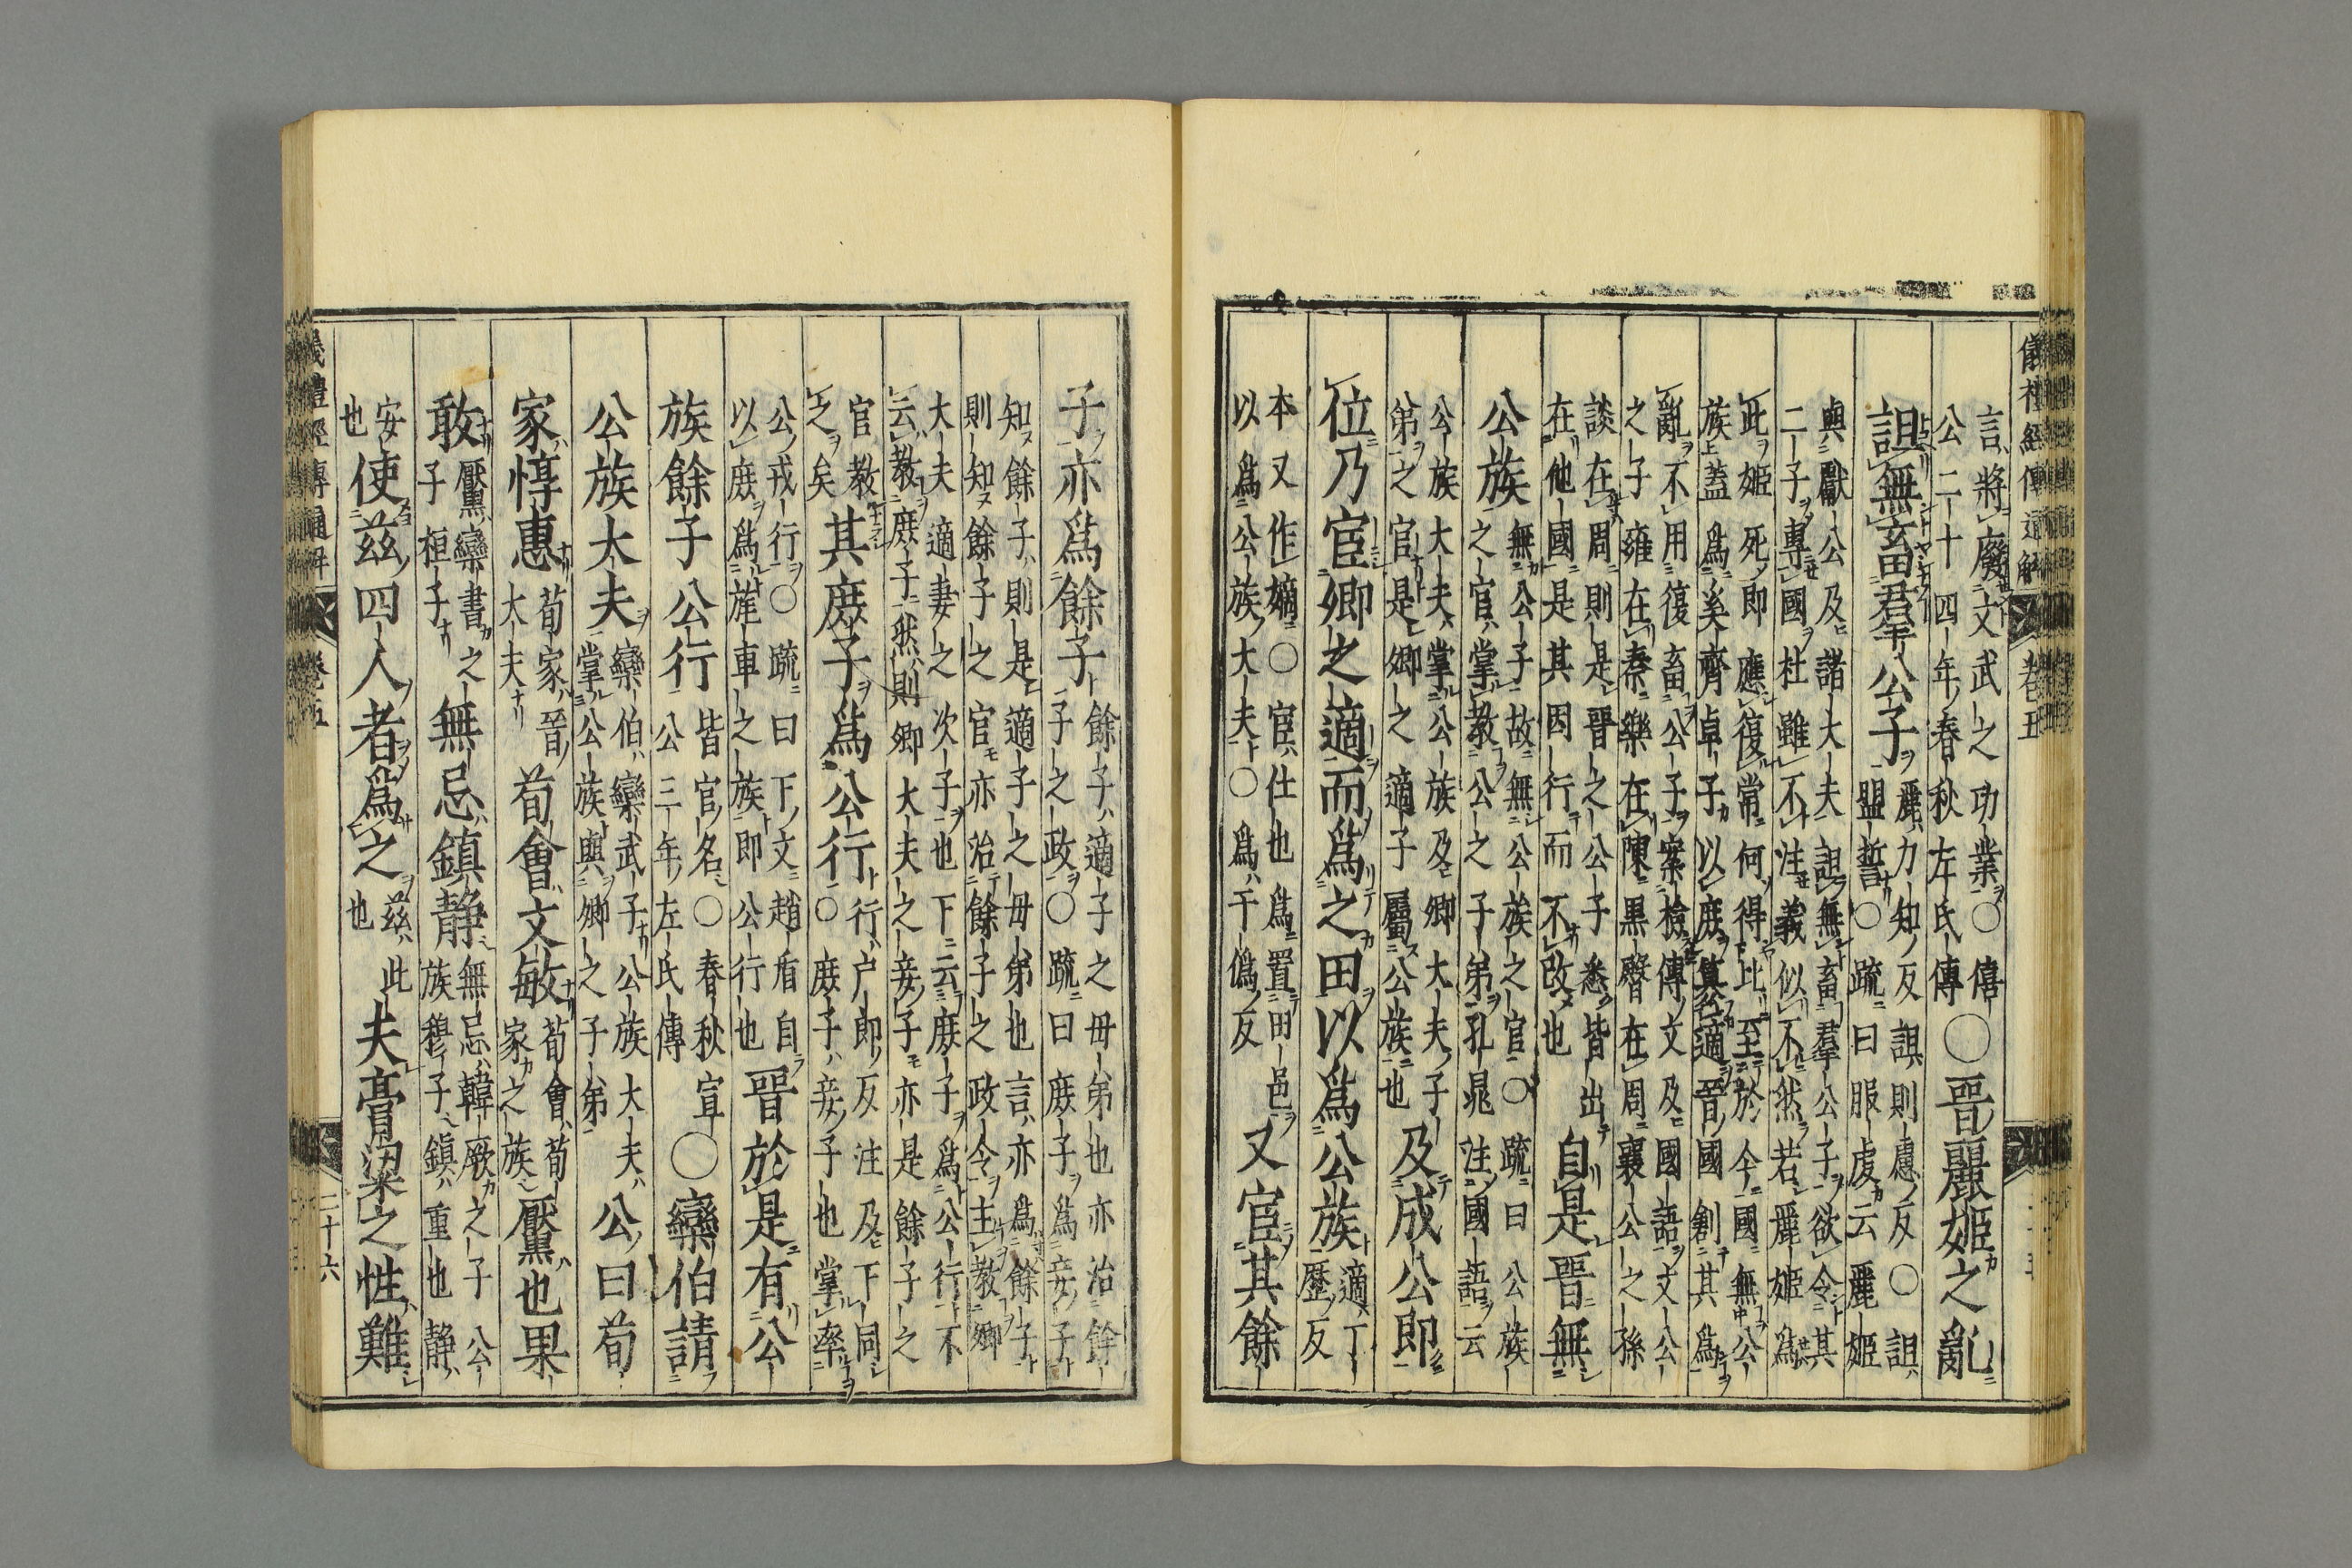 儀禮經傳通解 卷五
言將廢文武之功業○僖
公二十四年春秋左氏傳○晉麗姬之亂
詛無畜羣公子麗力知反詛則慮反○詛
盟誓○疏曰服虔云麗姬
與獻公及諸大夫詛無畜羣公子欲令其
二子專國杜雖不注義似不然若麗姬爲
此姬死即應復常何得比至於今國無公
族蓋爲奚齊卓子以庶簒適晉國創其爲
亂不用復畜公子案檢傳文及國語文公
之子雍在秦樂在陳黑臀在周襄公之孫
談在周則是晉之公子悉皆出
在他國是其因行而不改也自是晉無
公族無公子故無公族之官○疏曰公族
之官掌教公之子弟孔晁注國語云
公族大夫掌公族及卿大夫子
弟之官是卿之適子屬公族也及成公即
位乃宦卿之適而爲之田以爲公族適丁
歷反
本又作嫡○宦仕也爲置田邑又宦其餘
以爲公族大夫○爲于僞反
子亦爲餘子餘子適子之母弟也亦治餘
子之政○疏曰庶子爲妾子
知餘子則是適子之母弟也言亦爲餘子
則知餘子之官亦治餘子之政令主教卿
大夫適妻之次子也下云庶子爲公行不
云教庶子然則卿大夫之妾子亦是餘子之
官教
之矣其庶子爲公行行戶郎反注及下同
○庶子妾子也掌率
公戎行○疏曰下文趙盾自
以庶爲旄車之族即公行也晉於是有公
族餘子公行皆官名○春秋宣
公三年左氏傳○欒伯請
公族大夫欒伯欒武子公族大夫
掌公族與卿之子弟公曰荀
家惇惠荀家晉
大夫荀會文敏荀會荀
家之族黶也果
敢黶欒書之
子桓子無忌鎮静無忌韓厥之子公
族穆子鎮重也静
安
也使茲四人者爲之茲此
也夫膏粱之性難
儀禮經傳通解 卷五 二十六